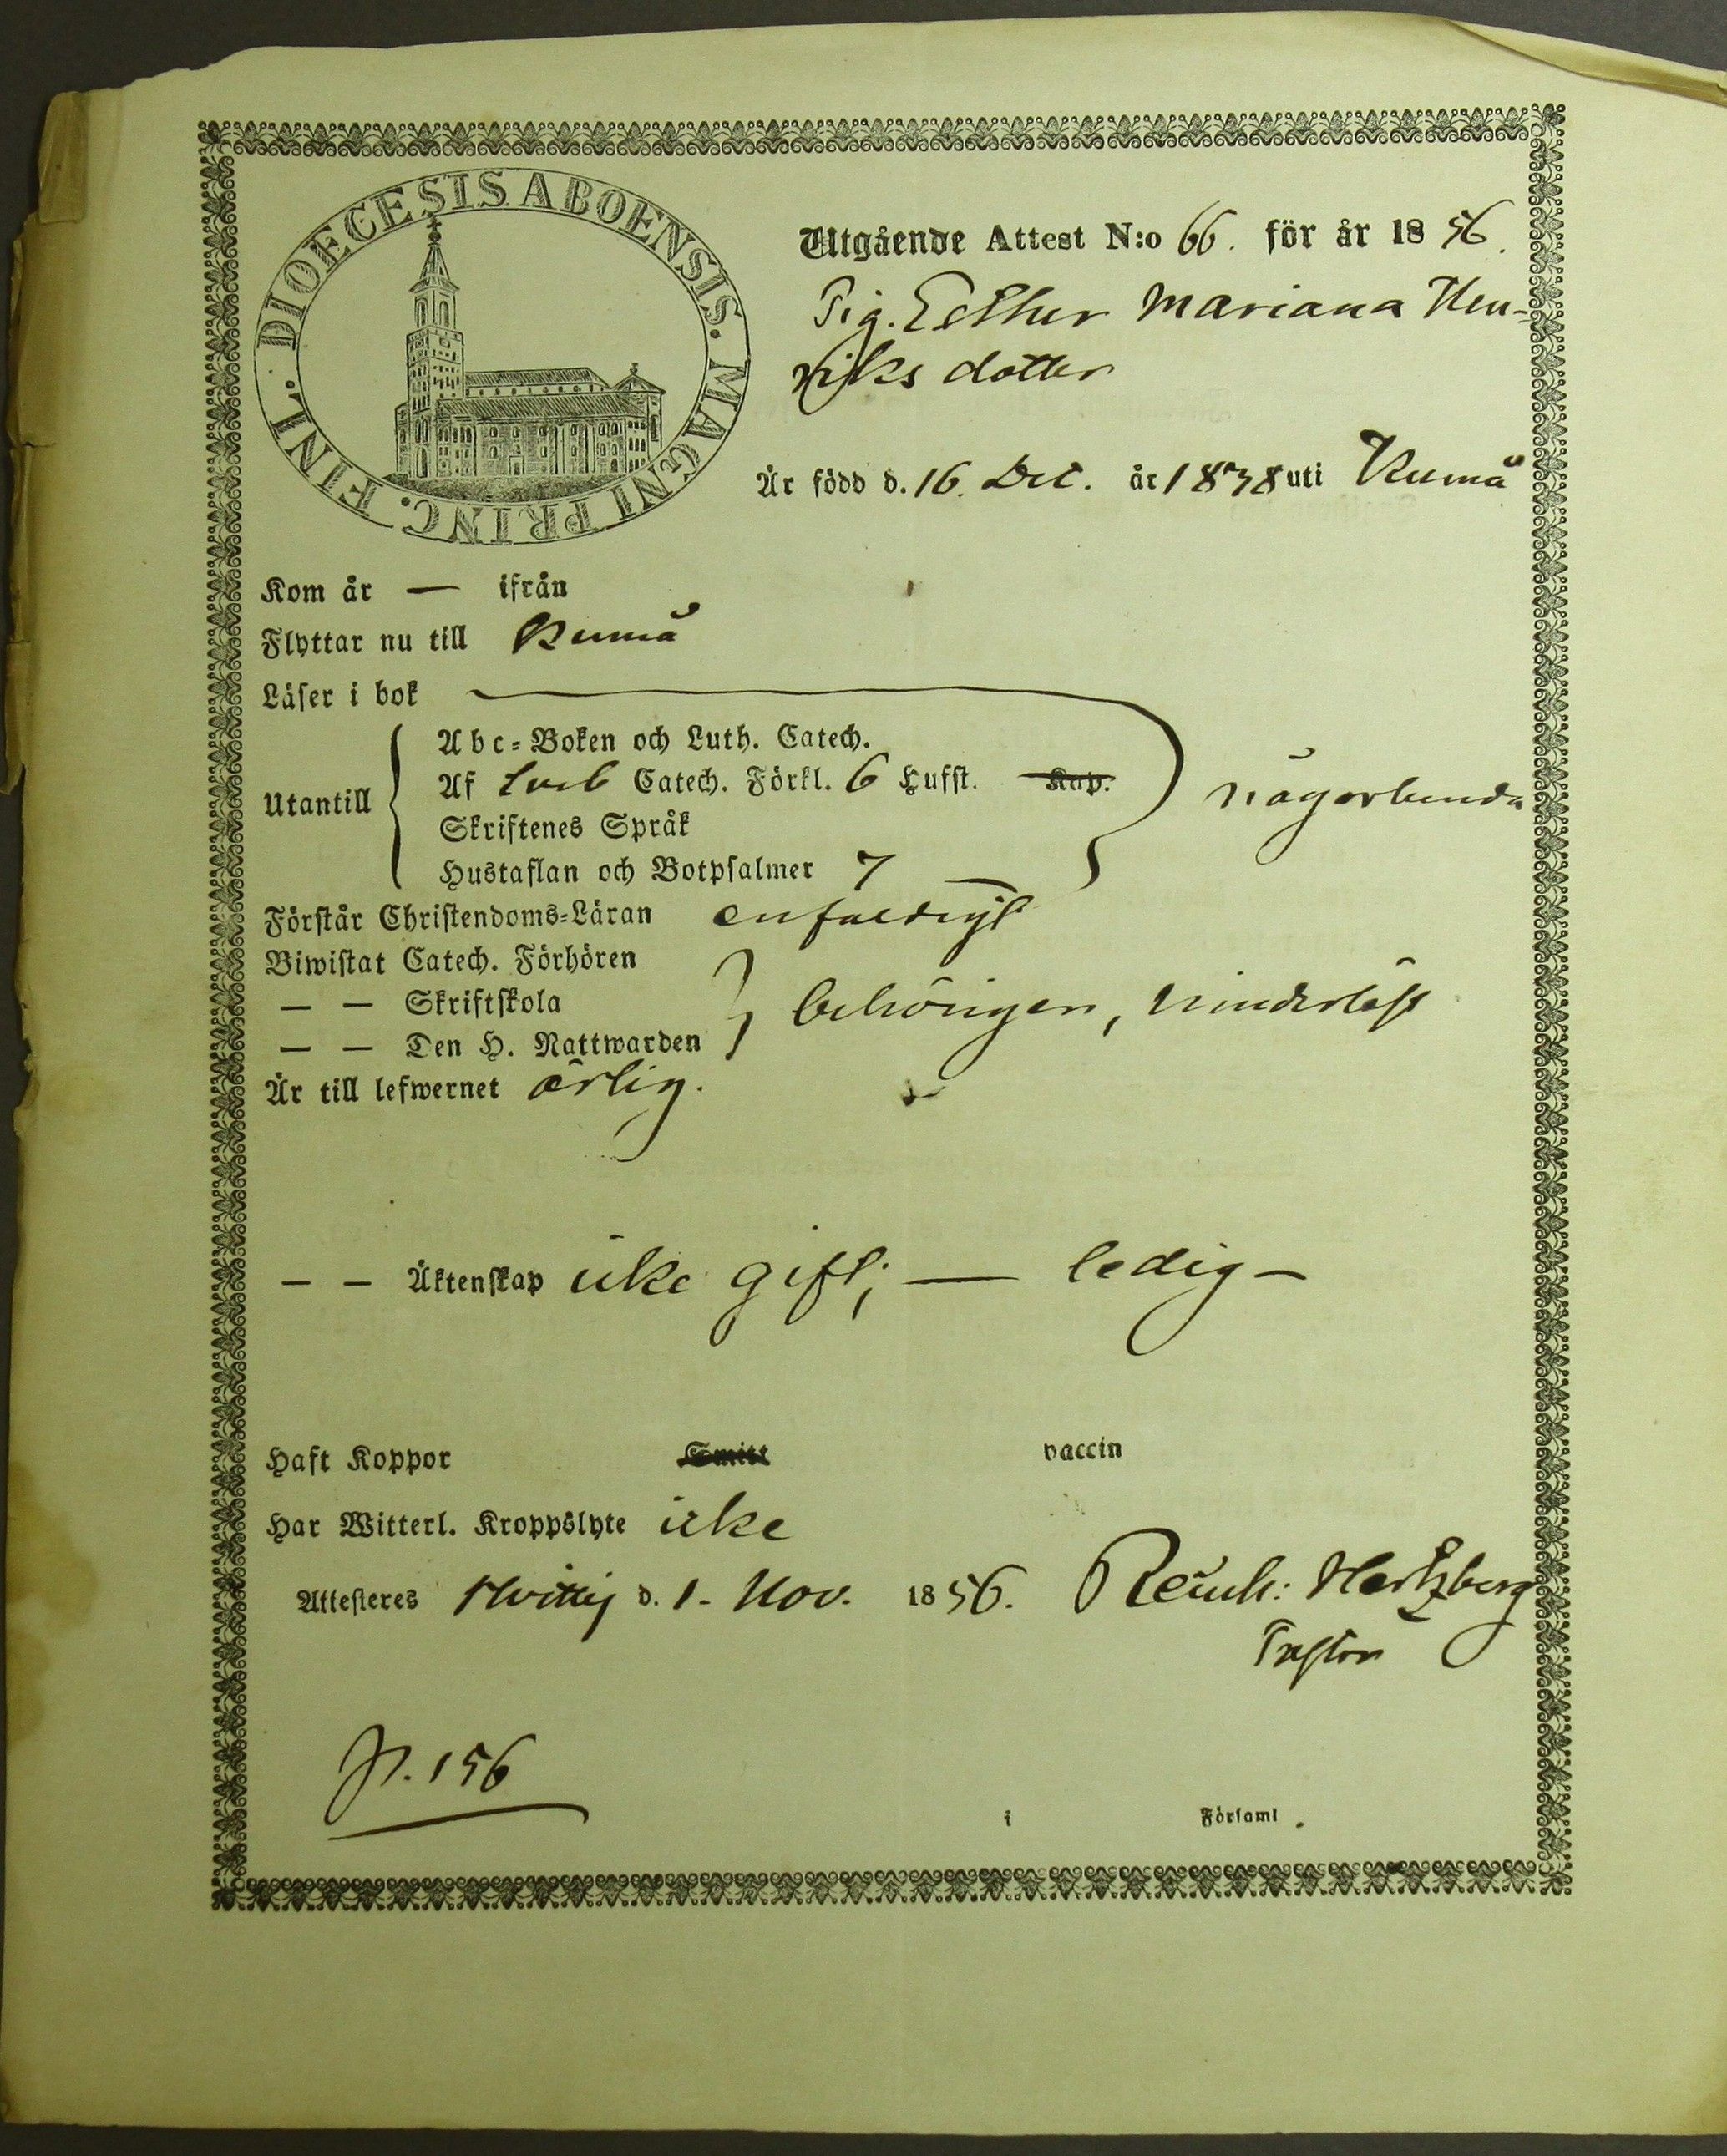 DIOECESIS ABOENSIS. MAGNI PRINC. FINL.
Utgående Attest N:o 66. för år 1856.
Pig. Esther Mariana Hen-
riks dotter
Är född d. 16. Dec. år 1838 uti Kumå
Kom år — ifrån
Flyttar nu till Kumå
Läser i bok
Utantill
Abc-Boken och Luth. Catech.
Af Sveb Catech. Förkl. 6 Hufst. Kap.
någorlunda
Skriftenes Språk
Hustaflan och Botpsalmer 7
Förstår Christendoms-Läran enfaldigt
Biwistat Catech. Förhören
— — Skriftskola
behörigen, hinderlöst
— — Den H. Nattwarden
Är till lefwernet ärlig.
— — Äktenskap icke gift; — ledig —
Haft Koppor Smitt vaccin
Har Witterl. Kroppslyte icke
Attesteres Hvittis d. 1. Nov. 1856. Reinh: Hertzberg
Pastor
p. 156
i Församl.